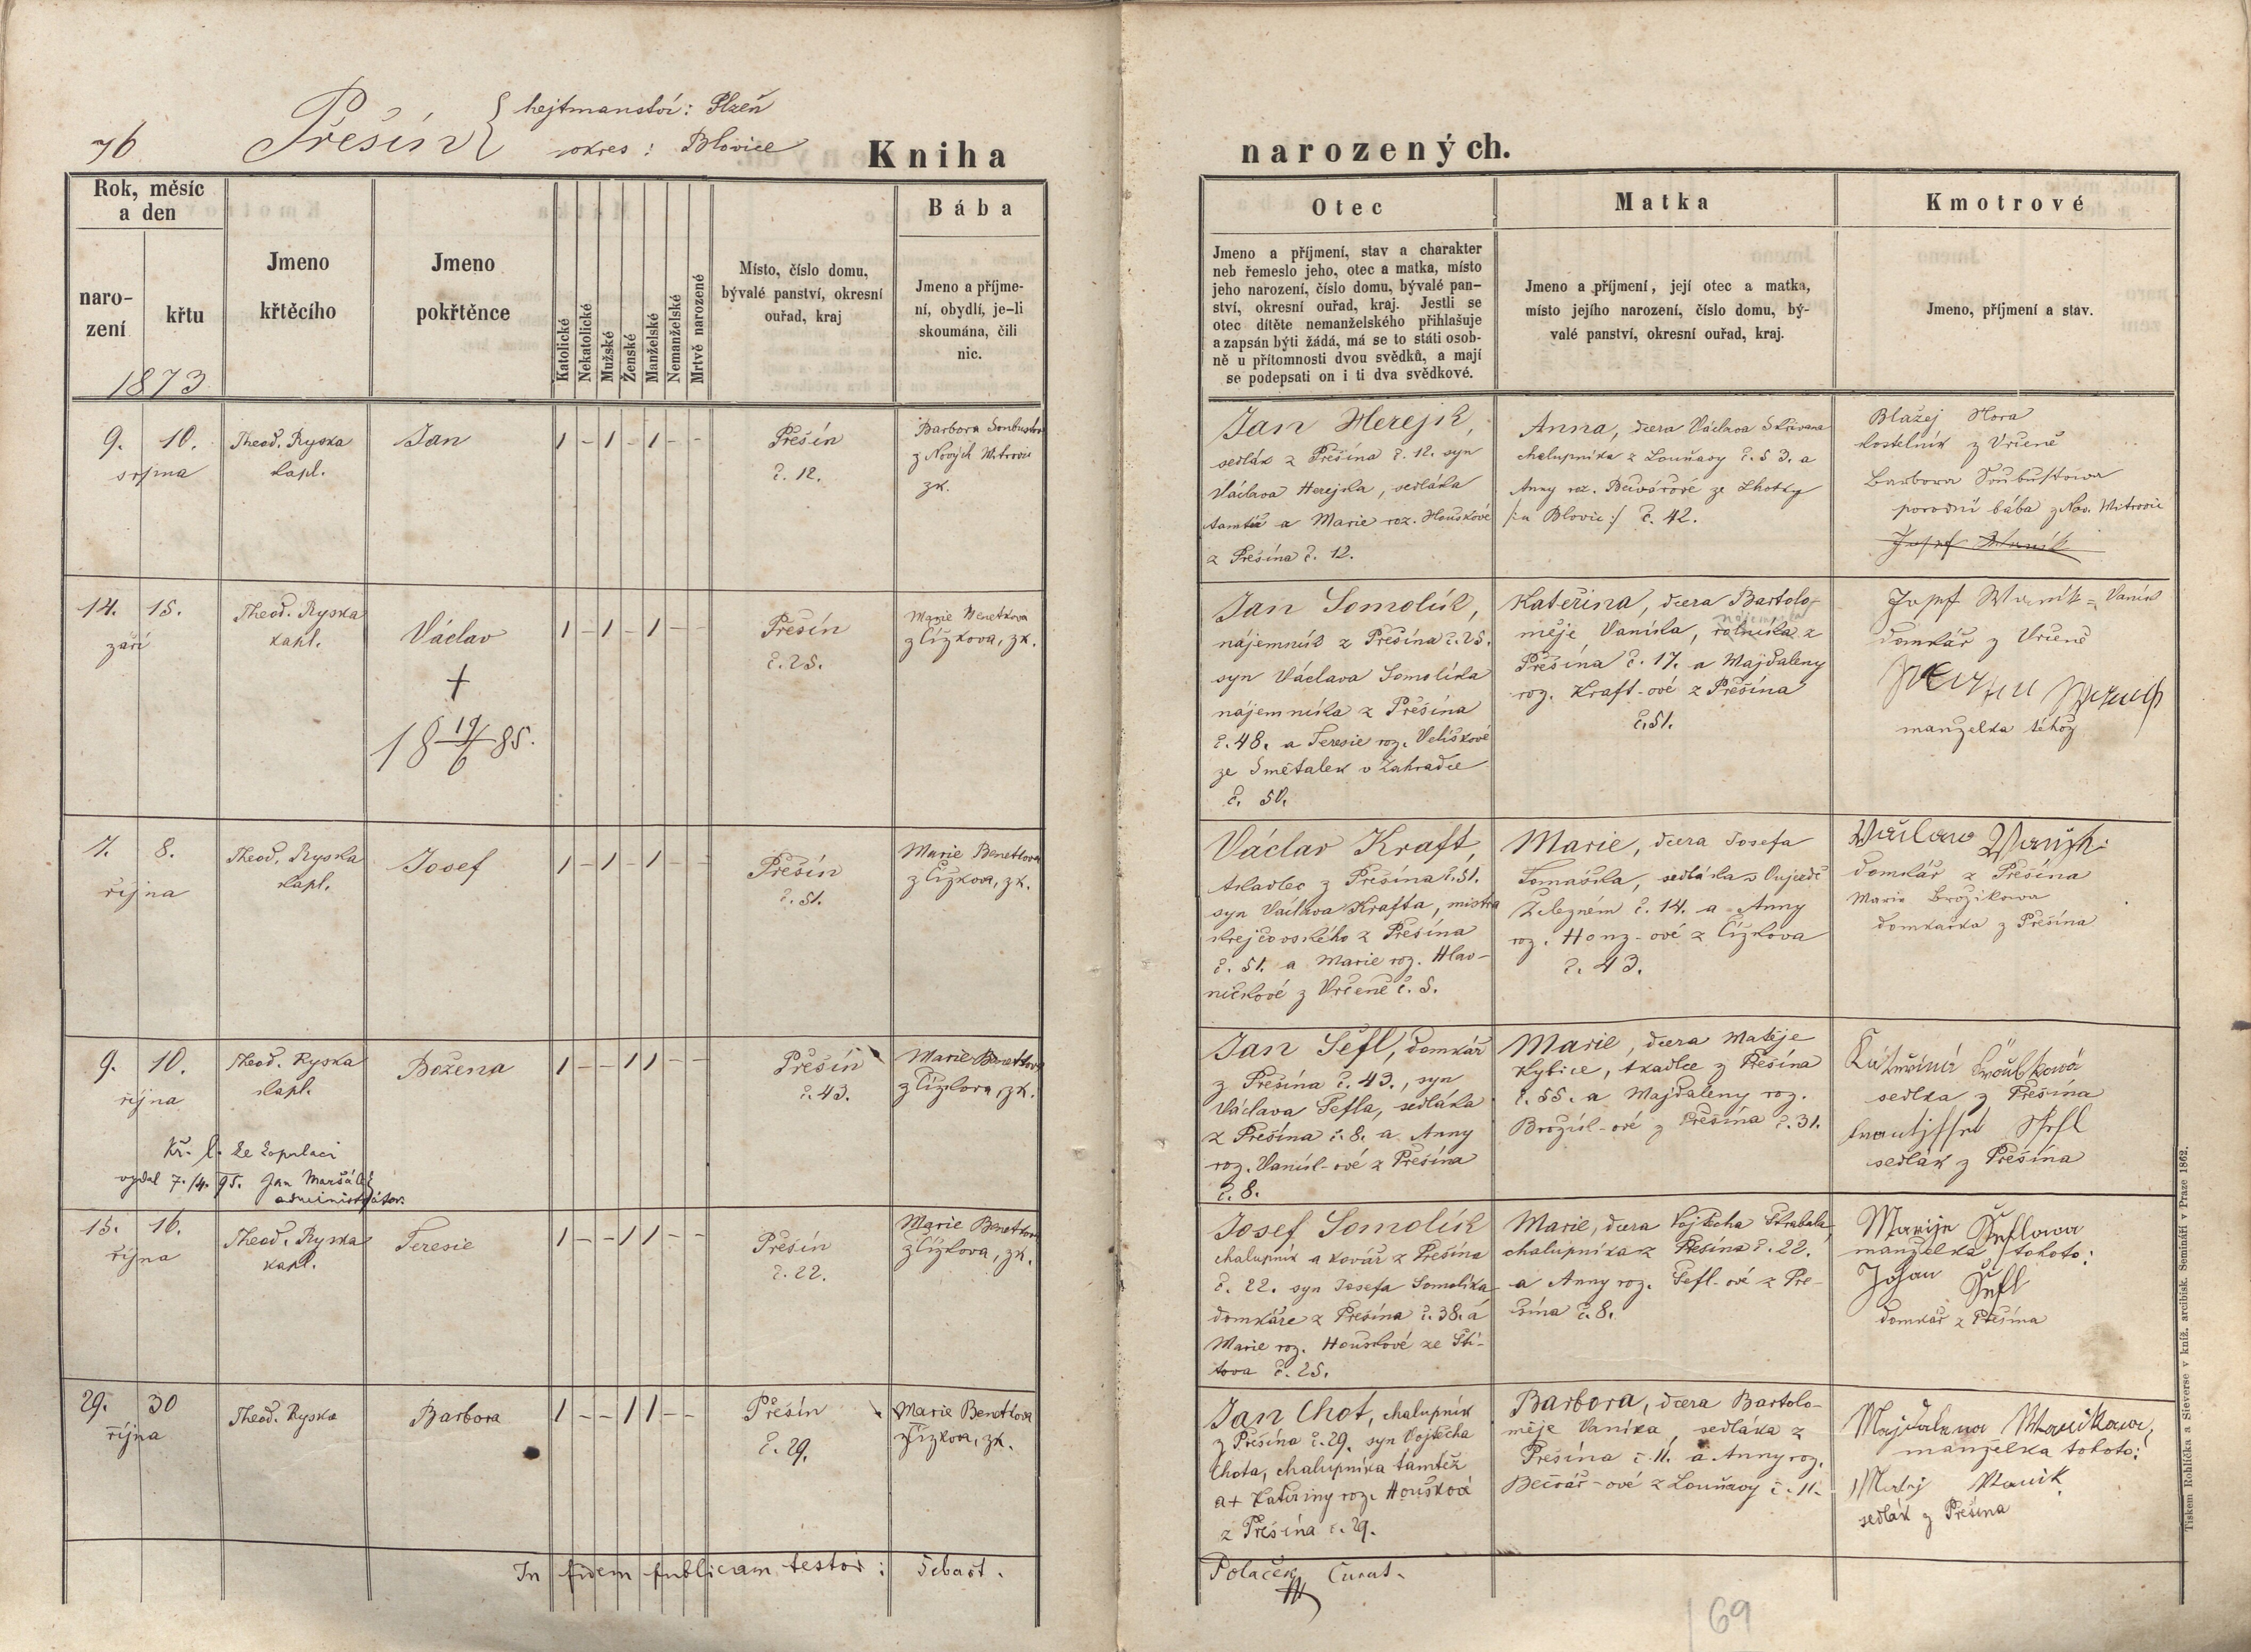 76
Přešín { hejtmanství: Plzeň
okres: Blovice
Kniha narozených.
Rok, měsíc
a den
naro-
zení
křtu
1873
Jmeno
křtěcího
Jmeno
pokřtěnce
Katolické
Nekatolické
Mužské
Ženské
Manželské
Nemanželské
Mrtvě narozené
Místo, číslo domu,
bývalé panství, okresní
ouřad, kraj
Bába
Jmeno a příjme-
ní, obydlí, je-li
skoumána, čili
nic.
Otec
Jmeno a příjmení, stav a charakter
neb řemeslo jeho, otec a matka, místo
jeho narození, číslo domu, bývalé pan-
ství, okresní ouřad, kraj. Jestli se
otec dítěte nemanželského přihlašuje
a zapsán býti žádá, má se to státi osob-
ně u přítomnosti dvou svědků, a mají
se podepsati on i ti dva svědkové.
Matka
Jmeno a příjmení, její otec a matka,
místo jejího narození, číslo domu, bý-
valé panství, okresní ouřad, kraj.
Kmotrové
Jmeno, příjmení a stav.
9. 10.
srpna
Theod. Ryska
kapl.
Jan
1 - 1 - 1 - -
Přešín
č. 12.
Barbora
z Nových Mitrovic
zk.
Jan Herejk,
sedlák z Přešína č. 12. syn
Václava Herejka, sedláka
tamtéž a Marie roz. Houškové
z Přešína č. 12.
Anna, dcera Václava Skřivana
chalupníka z Louňavy č. 53. a
Anny roz. ze Lhotky
/:u Blovic:/ č. 42.
Blažej Hora
kostelník z Vrčeně
Barbora
porodní bába z Nov. Mitrovic
Josef Waník
14. 15.
září
Theod. Ryska
kapl.
Václav
+
18 19/6 85.
1 - 1 - 1 - -
Přešín
č. 25.
Marie Benetkova
z Čížkova, zk.
Jan Somolík,
nájemník z Přešína č. 25.
syn Václava Somolíka
nájemníka z Přešína
č. 48. a Teresie roz. Velíškové
ze Smětalek v Zahradce
č. 50.
Kateřina, dcera Bartolo-
měje Vaníka, rolníka z
Přešína č. 17. a Majdaleny
roz. Kraft-ové z Přešína
č. 51.
Josef Waník = Vaník
domkář z Vrčeně
manželka téhož
7. 8.
října
Theod. Ryska
kapl.
Josef
1 - 1 - 1 - -
Přešín
č. 51.
Marie Benetkova
z Čížkova, zk.
Václav Kraft,
tkadlec z Přešína č. 51.
syn Václava Krafta, mistra
krejčovského z Přešína
č. 51. a Marie roz. Hlav-
ničkové z Vrčeně č. 5.
Marie, dcera Josefa
Tomáška, sedláka v Oujezdě
Železném č. 14. a Anny
roz. Honz-ové z Čížkova
č. 43.
Wáclaw
domkář z Přešína
Marie Brožikowa
domkářka z Přešína
9. 10.
října
Theod. Ryska
kapl.
Božena
1 - - 1 1 - -
Přešín
č. 43.
Marie Benetkova
z Čížkova, zk.
Kř. l. ke kopulaci
vydal 7./4. 95. Jan Maršálek
administrátor.
Jan Šefl, domkář
z Přešína č. 43., syn
Václava Šefla, sedláka
z Přešína č. 8. a Anny
roz. Vaník-ové z Přešína
č. 8.
Marie, dcera Matěje
Kybice, tkadlce z Přešína
č. 55. a Majdaleny roz.
Brožík-ové z Přešína č. 31.
Kateřina
sedlka z Přešína
Šefl
sedlák z Přešína
15. 16.
října
Theod. Ryska
kapl.
Teresie
1 - - 1 1 - -
Přešín
č. 22.
Marie Benetkova
z Čížkova, zk.
Josef Somolík
chalupník a kovář z Přešína
č. 22. syn Josefa Somolíka
domkáře z Přešína č. 38. a
Marie roz. Houškové ze Ští-
tova č. 25.
Marie, dcera Vojtěcha Škrabala,
chalupníka z Přešína č. 22.
a Anny roz. Šefl-ové z Pře-
šína č. 8.
Marije Šeflowa
manželka tohoto:
Johan Šefl
domkář z Přešína
29. 30
října
Theod. Ryska
Barbora
1 - - 1 1 - -
Přešín
č. 29.
Marie Benetkova
z Čížkova, zk.
Jan Chot, chalupník
z Přešína č. 29. syn Vojtěcha
Chota, chalupníka tamtéž
a + Kateřiny roz. Houškové
z Přešína č. 29.
Barbora, dcera Bartolo-
měje Vaníka, sedláka z
Přešína č. 11. a Anny roz.
Bečvář-ové z Louňavy č. 11.
Majdalena Wanikowa,
manželka tohoto:
Matěj Wanik
sedlák z Přešína
In fidem publicam testor: Šebast.
Polaček Curat.
69
Tiskem Rohlíčka a Sieverse v kníž. arcibisk. Semináři v Praze 1862.